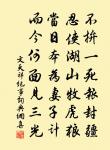 不拚一死報封疆
忍使湖山牧虎狼
當日本為妻子計
而今何面見三光
文天祥紀事詩與儷集